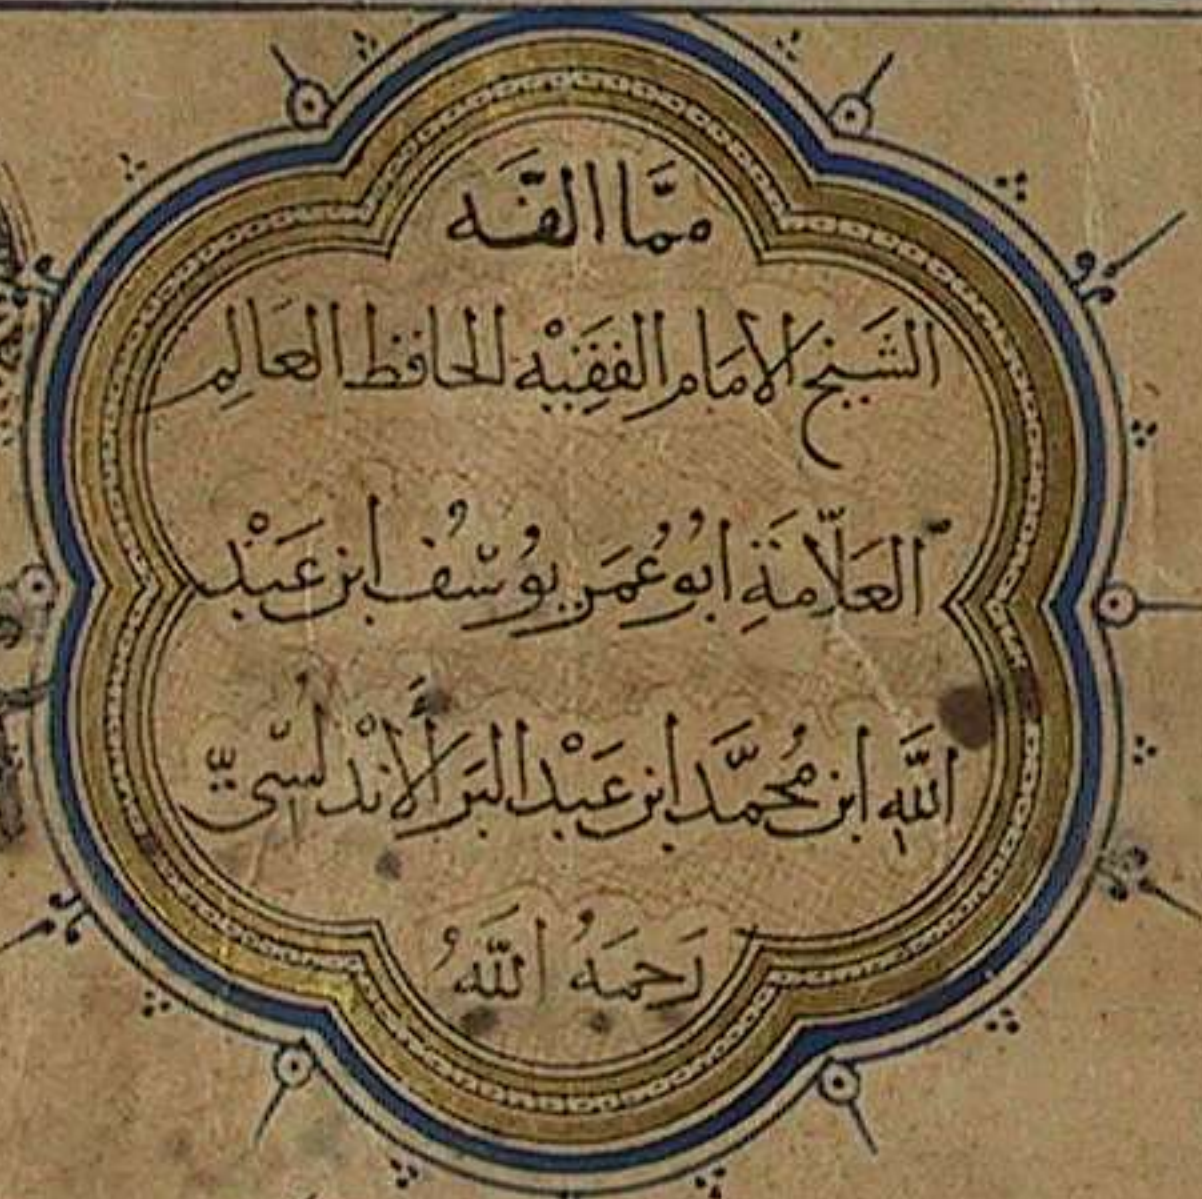 ممَّا الفَّه
الشَيخ الامَام الفَقِيْه الحافظ العَالِم
العَلّامَةِ ابُو عُمَر يُوسُف ابن عَبْد
اللَّهِ ابن مُحمَّد ابن عَبْد البَر الأَنْدلُسىّ
رَحمَهُ اللَّهُ